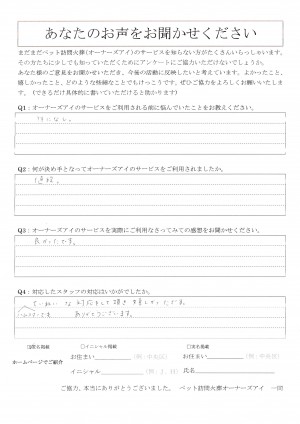 あなたのお声をお聞かせください
まだまだペット訪問火葬(オーナーズアイ)のサービスを知らない方がたくさんいらっしゃいます。
その方たちに少しでも知っていただくためにアンケートにご協力いただけないでしょうか。
あなた様のご意見をお聞かせいただき、今後の活動に反映したいと考えています。よかったこと、
嬉しかったこと、どのような些細なことでもけっこうです。ぜひご協力をよろしくお願いいたしま
す。(できるだけ具体的に書いていただけると助かります)
Q1:オーナーズアイのサービスをご利用される前に悩んでいたことをお教えください。
特になし。
Q2:何が決め手となってオーナーズアイのサービスをご利用されましたか。
値段。
Q3:オーナーズアイのサービスを実際にご利用なさってみての感想をお聞かせください。
良かったです。
Q4:対応したスタッフの対応はいかがでしたか。
ていねいな対応をして頂き
ありがとうございます。
□匿名掲載 □イニシャル掲載 □実名掲載
お住まい お住まい
ホームページでご紹介
イニシャル 氏名
ご協力、本当にありがとうございました。 ペット訪問火葬オーナーズアイ 一同